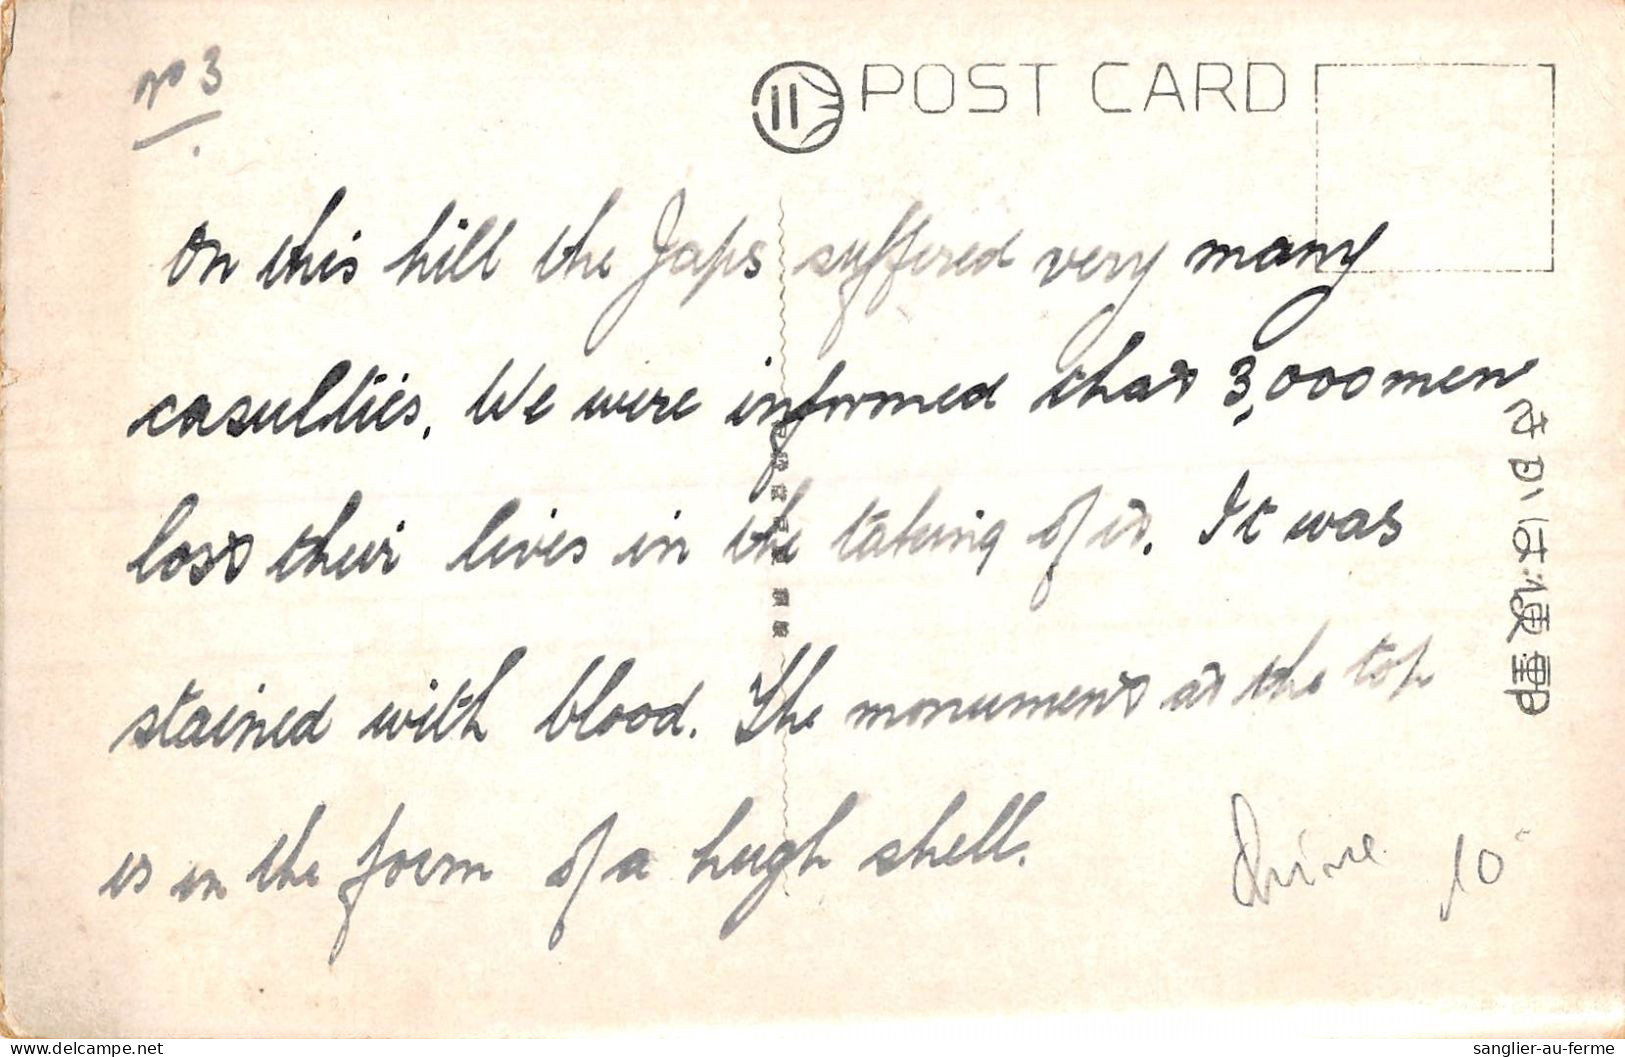 No 3
POST CARD
On this hill the Japs suffered very many
casulties. We were informed that 3,000 men
lost their lives in the taking of it. It was
stained with blood. The monument at the top
is in the form of a hugh shell.
きかは便郵
Chine 10
delcampe.net
sanglier-au-ferme